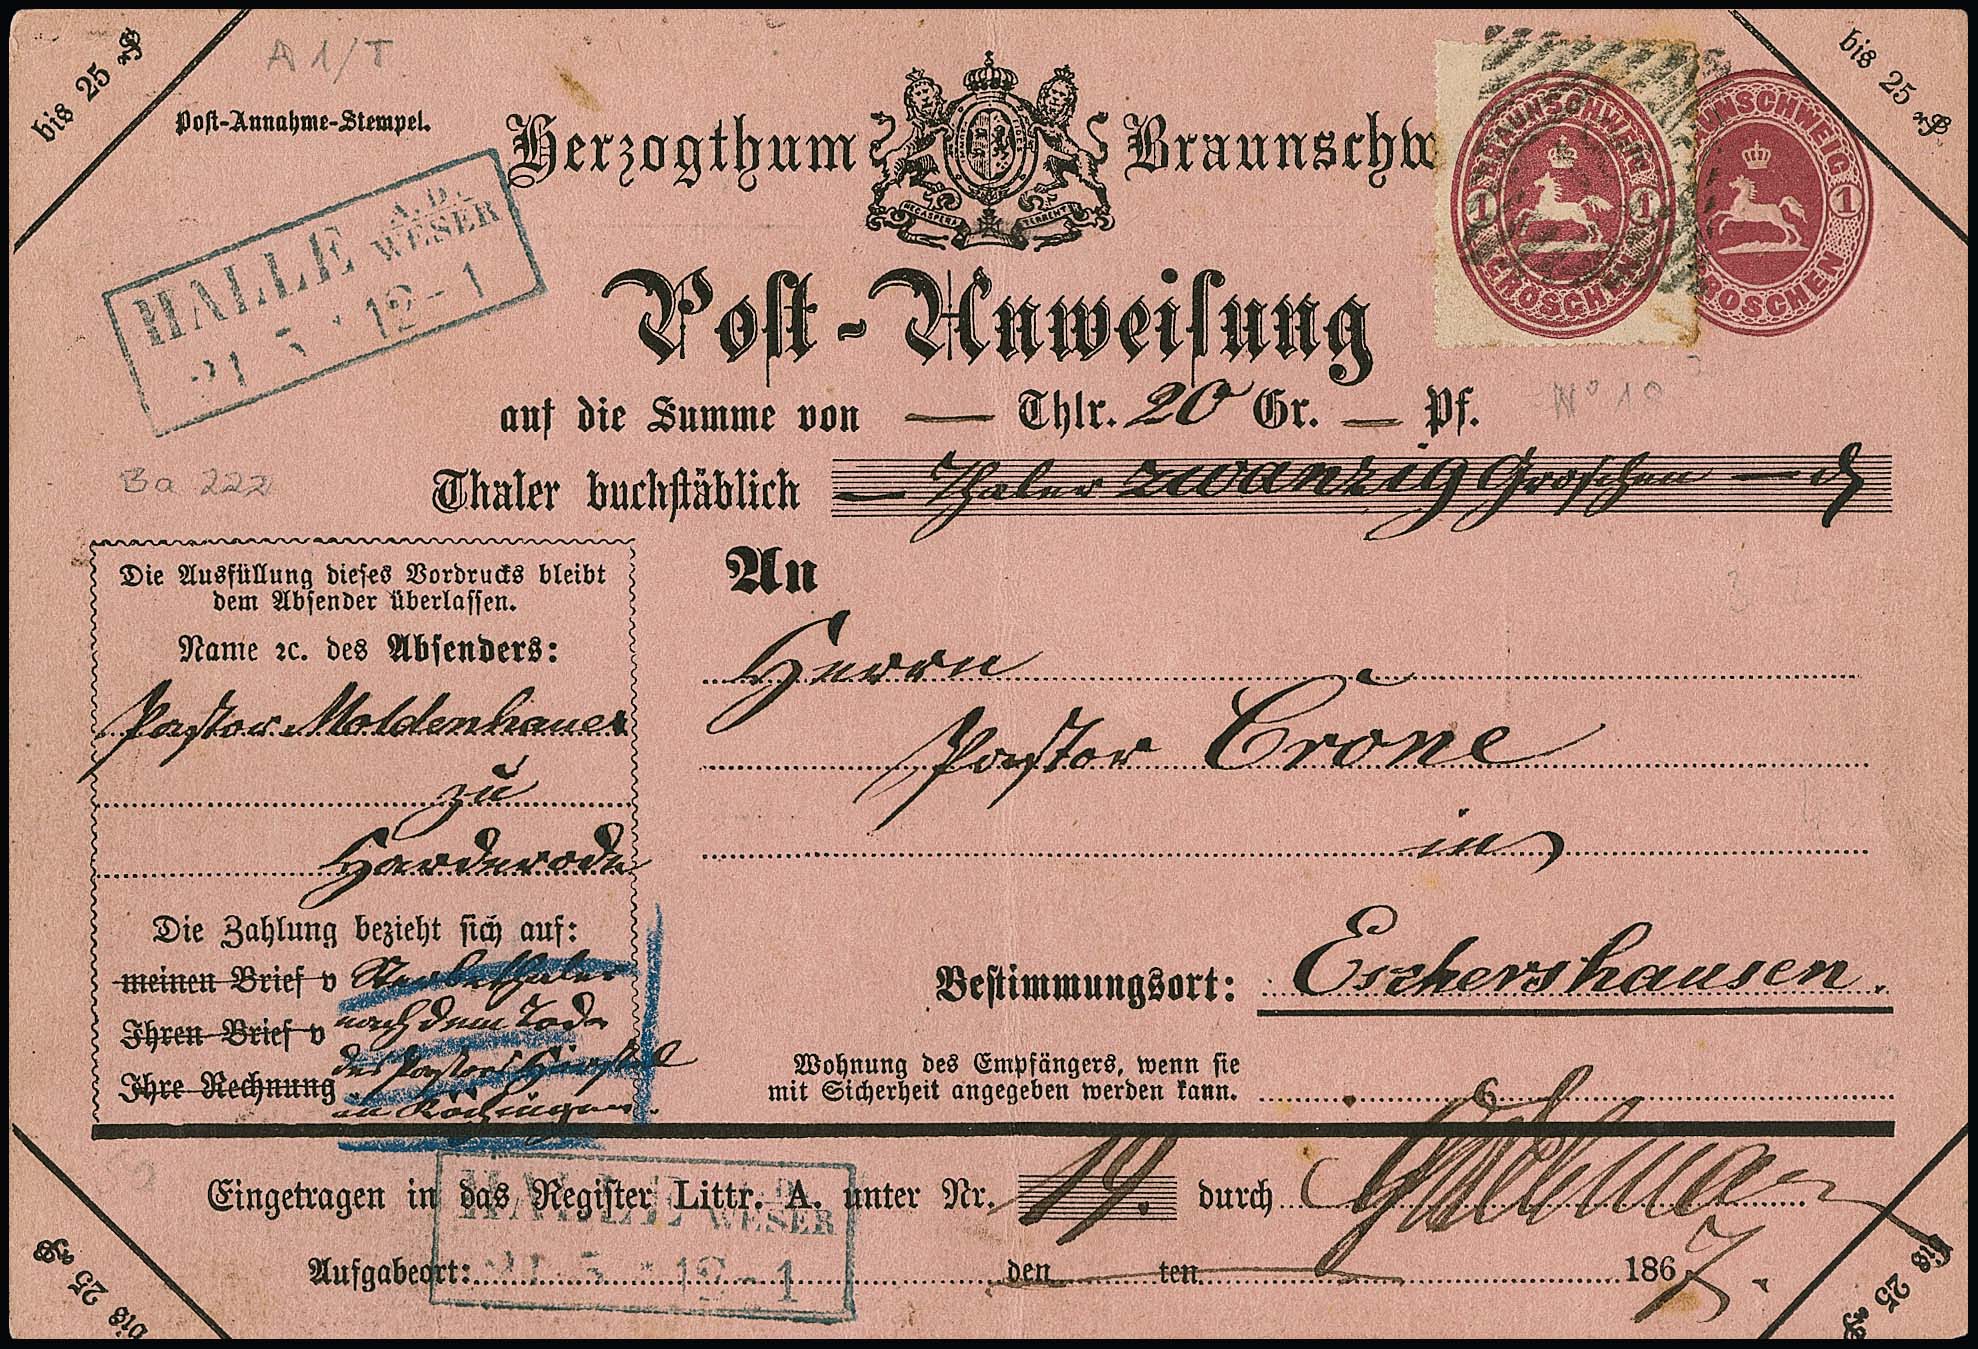 bis 25 ₰
A 1/T
bis 25 ₰
Post-Annahme-Stempel.
Herzogthum Braunschw
BRAUNSCHWEIG
1 1
GROSCHEN
AUNSCHWEIG
1
ROSCHEN
NEC ASPERA TERRENT
HALLE A.D. WESER
21 5 * 12-1
Post-Anweisung
auf die Summe von — Thlr. 20 Gr. — Pf.
No 10
Ba 222
Thaler buchstäblich — Thaler zwanzig Groschen — ₰
Die Ausfüllung dieses Vordrucks bleibt
dem Absender überlassen.
Name ꝛc. des Absenders:
Pastor Moldenhauer
zu
Harderode
Die Zahlung bezieht sich auf:
meinen Brief v Sterbethaler
Ihren Brief v nach dem Tode
Ihre Rechnung des Pastors
in
An
Herrn
Pastor Crone
in
Bestimmungsort: Eschershausen.
Wohnung des Empfängers, wenn sie
mit Sicherheit angegeben werden kann.
Eingetragen in das Register Littr. A. unter Nr. 19. durch
HALLE A.D. WESER
21 5 * 12-1
Aufgabeort: den ten 1867.
bis 25 ₰
bis 25 ₰